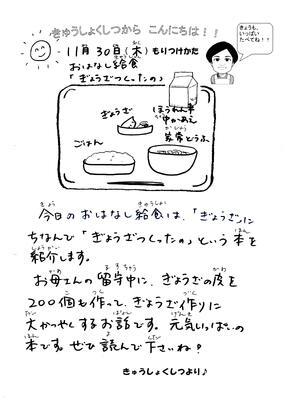 きゅうしょくしつから こんにちは！！
きょうも、
いっぱい
たべてね！！
11月30日(木) もりつけかた
おはなし給食
「ぎょうざつくったの」
ぎょうざ
ほうれん草
中かあえ
家常どうふ
ごはん
今日のおはなし給食は、「ぎょうざ」に
ちなんで「ぎょうざつくったの」という本を
紹介します。
お母さんの留守中に、ぎょうざの皮を
200個も作って、ぎょうざ作りに
大かつやくするお話です。元気いっぱいの
本です。ぜひ読んで下さいね！
きゅうしょくしつより♪